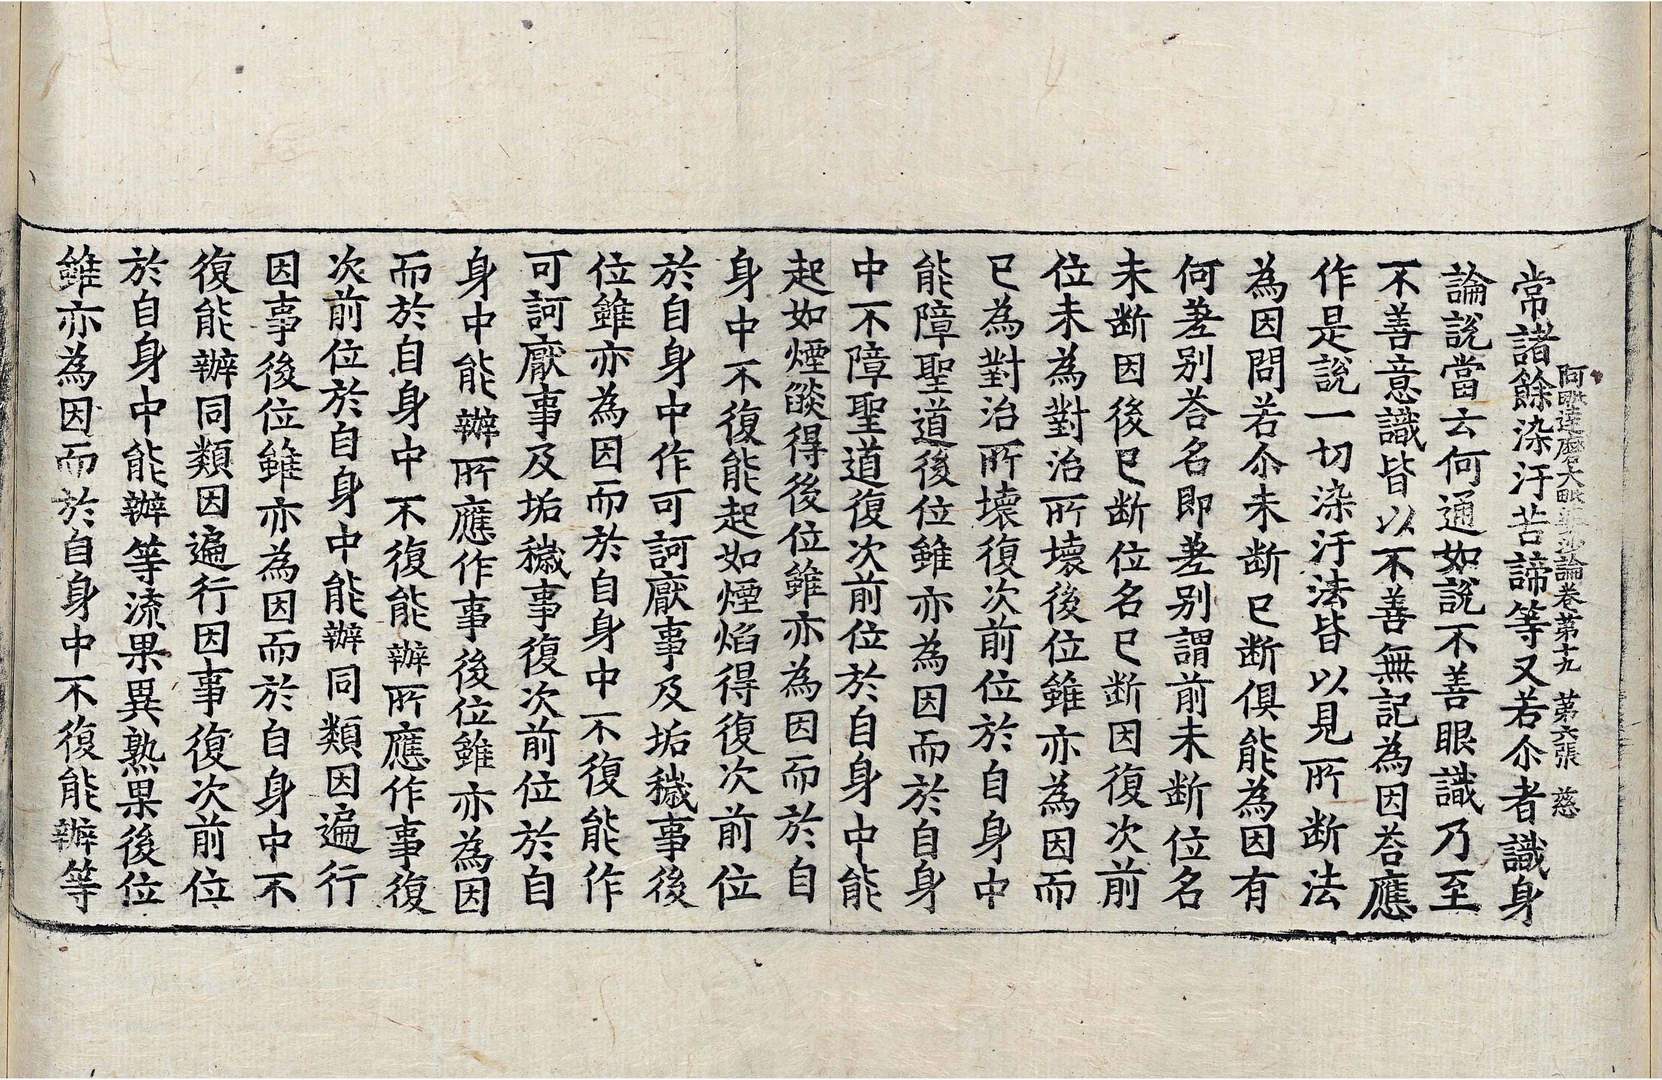 阿毗達磨大毗婆沙論卷第十九 第六張 慈
常諸餘染汙苦諦等又若尒者識身
論說當云何通如說不善眼識乃至
不善意識皆以不善無記為因荅應
作是說一切染汙法皆以見所断法
為因問若尒未断已断俱能為因有
何差別荅名即差別謂前未断位名
未断因後已断位名已断因復次前
位未為對治所壞後位雖亦為因而
已為對治所壞復次前位於自身中
能障聖道後位雖亦為因而於自身
中不障聖道復次前位於自身中能
起如煙燄得後位雖亦為因而於自
身中不復能起如煙焰得復次前位
於自身中作可訶厭事及垢穢事後
位雖亦為因而於自身中不復能作
可訶厭事及垢穢事復次前位於自
身中能辦所應作事後位雖亦為因
而於自身中不復能辦所應作事復
次前位於自身中能辦同類因遍行
因事後位雖亦為因而於自身中不
復能辦同類因遍行因事復次前位
於自身中能辦等流果異熟果後位
雖亦為因而於自身中不復能辦等